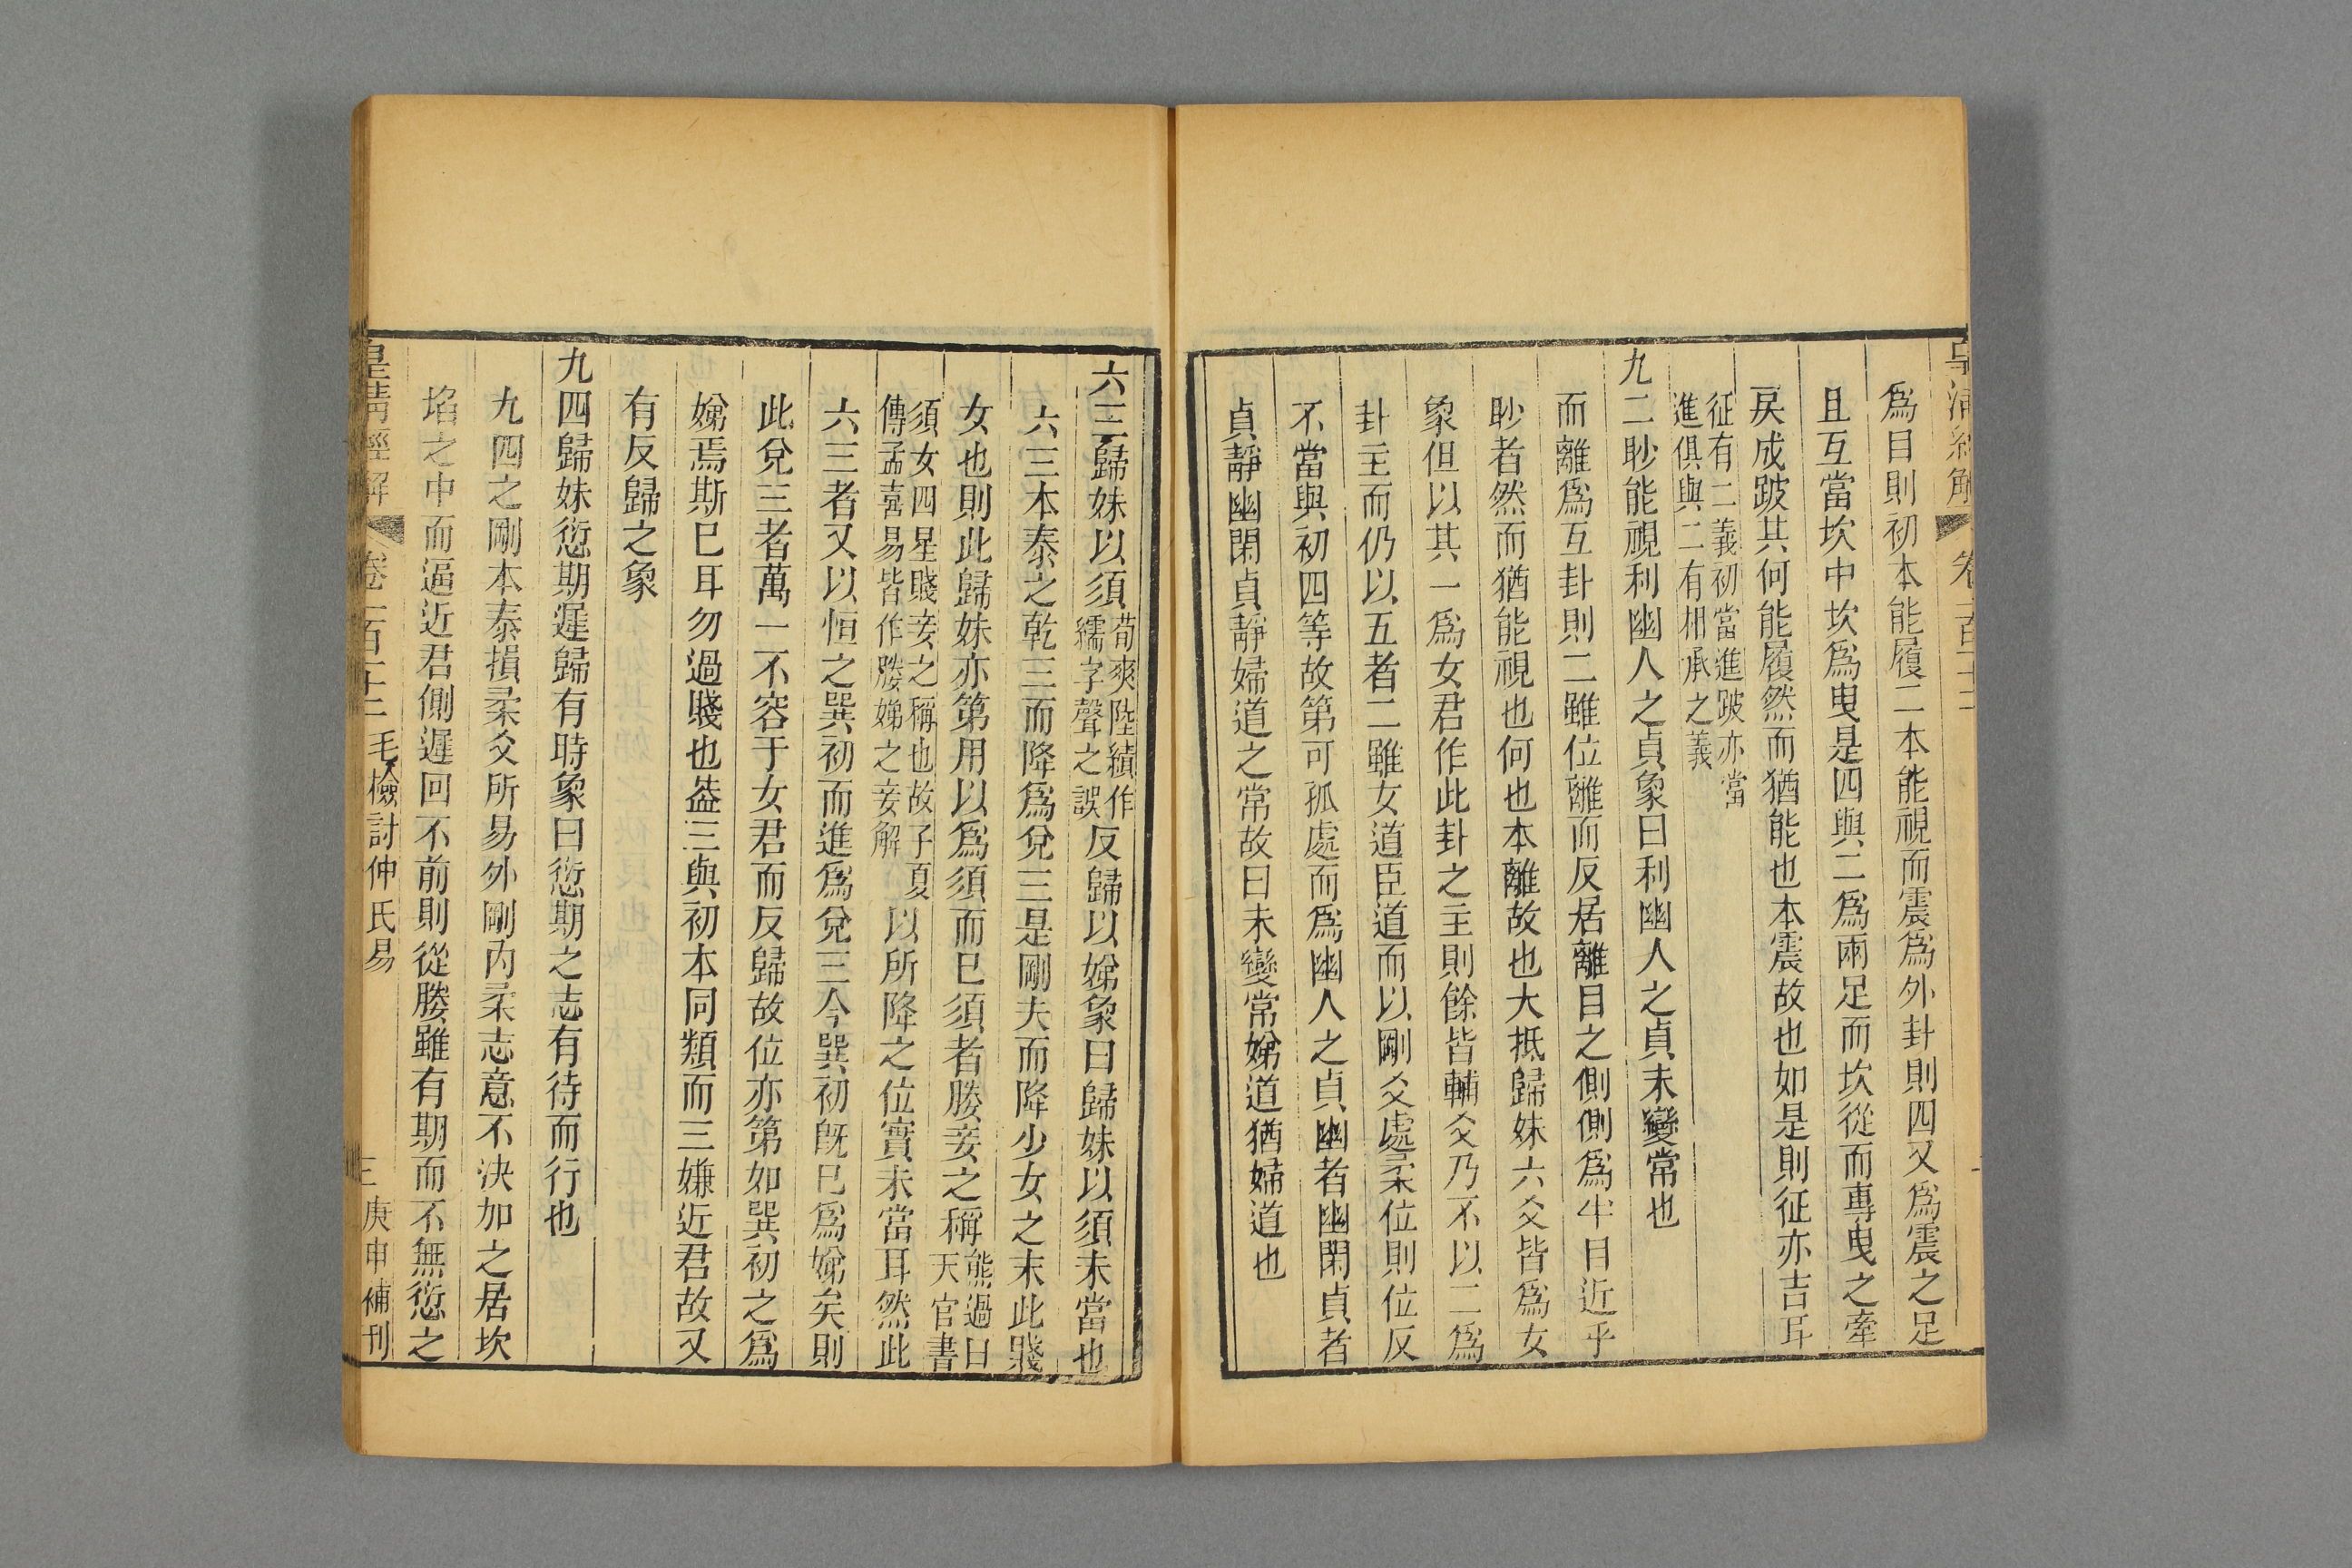 爲目則初本能履二本能視而震爲外卦則四又爲震之足
且互當坎中坎爲曳是四與二爲兩足而坎從而專曳之牽
戾成跛其何能履然而猶能也本震故也如是則征亦吉耳
征有二義初當進跛亦當
進俱與二有相承之義
九二眇能視利幽人之貞象曰利幽人之貞未變常也
而離爲互卦則二雖位離而反居離目之側側爲半目近乎
眇者然而猶能視也何也本離故也大抵歸妹六爻皆爲女
象但以其一爲女君作此卦之主則餘皆輔爻乃不以二爲
卦主而仍以五者二雖女道臣道而以剛爻處柔位則位反
不當與初四等故第可孤處而爲幽人之貞幽者幽閑貞者
貞靜幽閑貞靜婦道之常故曰未變常娣道猶婦道也
六三歸妹以須荀爽陸績作繻字聲之誤反歸以娣象曰歸妹以須未當也
六三本泰之乾三而降爲兌三是剛夫而降少女之末此賤
女也則此歸妹亦第用以爲須而已須者媵妾之稱熊過曰天官書
須女四星賤妾之稱也故子夏傳孟喜易皆作媵娣之妾解以所降之位實未當耳然此
六三者又以恒之巽初而進爲兌三今巽初旣已爲娣矣則
此兌三者萬一不容于女君而反歸故位亦第如巽初之爲
娣焉斯已耳勿過賤也葢三與初本同類而三嫌近君故又
有反歸之象
九四歸妹愆期遲歸有時象曰愆期之志有待而行也
九四之剛本泰損柔爻所易外剛內柔志意不決加之居坎
埳之中而逼近君側遲回不前則從媵雖有期而不無愆之
皇清經解 卷一百十二 毛檢討仲氏易 三 庚申補刊